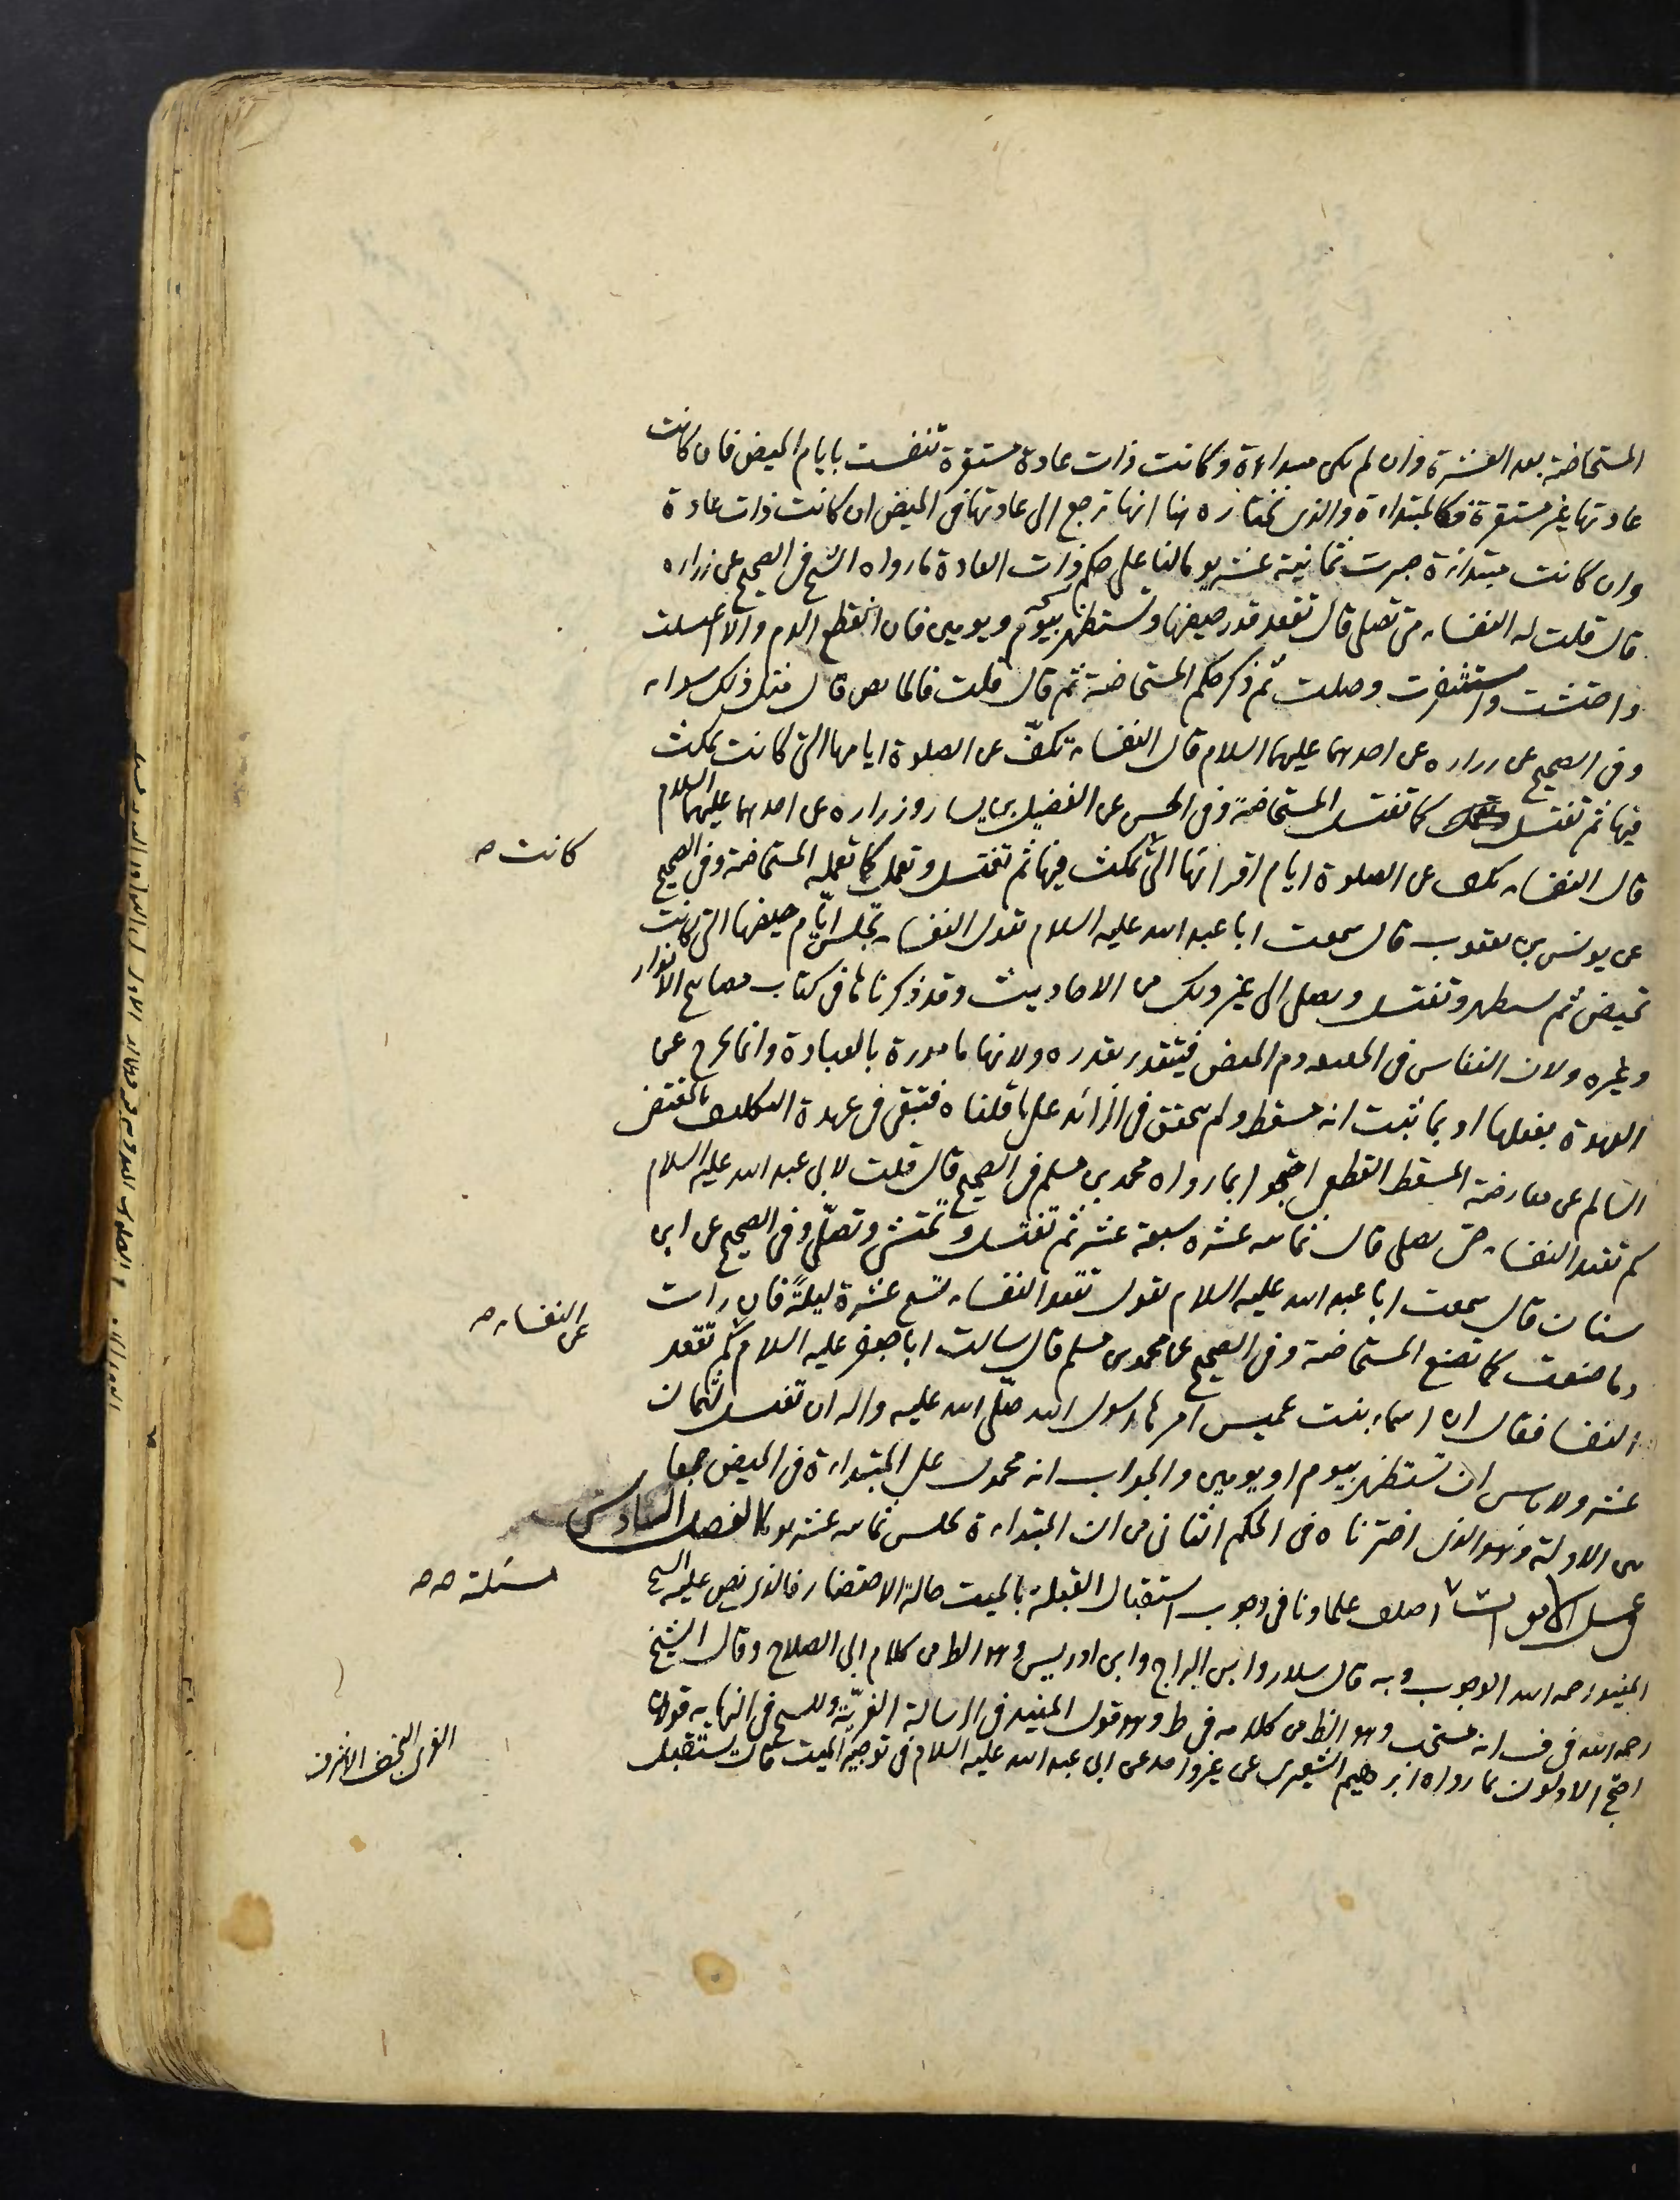 المستحاضة بعد العشرة وان لم يكن مبتداءة وكانت ذات عادة مستقرة تنفست بايام الحيض فان كانت
عادتها غير مستقرة فكالمبتداءة والذى نختاره هنا انها ترجع الى عادتها فى الحيض ان كانت ذات عادة
وان كانت مبتدئة صبرت ثمانية عشر يوما لنا على حكم ذات العادة ما رواه الشيخ فى الصحيح عن زراره
قال قلت له النفساء متى تصلى قال تقعد قدر حيضها وتستظهر بيوم ويومين فان انقطع الدم والا اغتسلت
واحتشت واستثفرت وصلت ثم ذكر حكم المستحاضة ثم قال قلت فالحائض قال مثل ذلك سواء
وفى الصحيح عن زراره عن احدهما عليهما السلام قال النفساء تكفّ عن الصلوة ايامها التى كانت تمكث
فيها ثم تغتسل كما تغتسل المستحاضة وفى الحسن عن الفضيل بن يسار وزراره عن احدهما عليهما السلام
قال النفساء تكف عن الصلوة ايام اقرائها التى تمكث فيها ثم تغتسل وتعمل كما تعمله المستحاضة وفى الصحيح
كانت صح
عن يونس بن يعقوب قال سمعت ابا عبد الله عليه السلام يقول النفساء تجلس ايّام حيضها التى كانت
تحيض ثم تستظهر وتغتسل وتصلى الى غير ذلك من الاحاديث وقد ذكرناها فى كتاب مصابيح الانوار
وغيره ولان النفاس فى الحقيقه دم الحيض فيتقدر بقدره ولانها مامورة بالعبادة وانما يخرج عن
العهدة بفعلها او بما يثبت انه مسقط ولم يتحقق فى الزائد على ما قلناه فتبقى فى عهدة التكليف بالمقتضى
السالم عن معارضة المسقط القطعى احتجوا بما رواه محمد بن مسلم فى الصحيح قال قلت لابى عبد الله عليه السلام
كم تقعد النفساء حتى تصلى قال ثمان عشره سبعة عشر ثم تغتسل وتحتشى وتصلّى وفى الصحيح عن ابن
سنان قال سمعت ابا عبد الله عليه السلام يقول تقعد النفساء تسع عشرة ليلةً فان رات
دما صنعت كما تصنع المستحاضة وفى الصحيح عن محمد بن مسلم قال سالت ابا جعفر عليه السلام كم تقعد
عن النفساء صح
النفساء فقال ان اسماء بنت عميس امرها رسول الله صلّى الله عليه واله ان تغتسل لثمان
عشر ولا باس ان تستظهر بيوم او يومين والجواب انه محمول على المبتداءة فى الحيض جمعا
بين الادلة وهو الذى اخترناه فى الحكم الثانى من ان المبتداءة تجلس ثمانيه عشر يوما الفصل السادس
فى غسل الاموات اختلف علماونا فى وجوب استقبال القبلة بالميت حالة الاحتضار فالذى نص عليه الشيخ
مسئلة صح
المفيد رحمه الله الوجوب وبه قال سلار وابن البراج وابن ادريس وهو الظ من كلام ابى الصلاح وقال الشيخ
رحمه الله فى ف انه مستحب وهو الظ من كلامه فى ط وهو قول المفيد فى الرسالة الغريّه وللشيخ فى النهايه قولان
الغرى النجف الاشرف
احتج الاولون بما رواه ابرهيم الشعيرى عن غير واحد عن ابى عبد الله عليه السلام فى توجيه الميت قال تستقبل